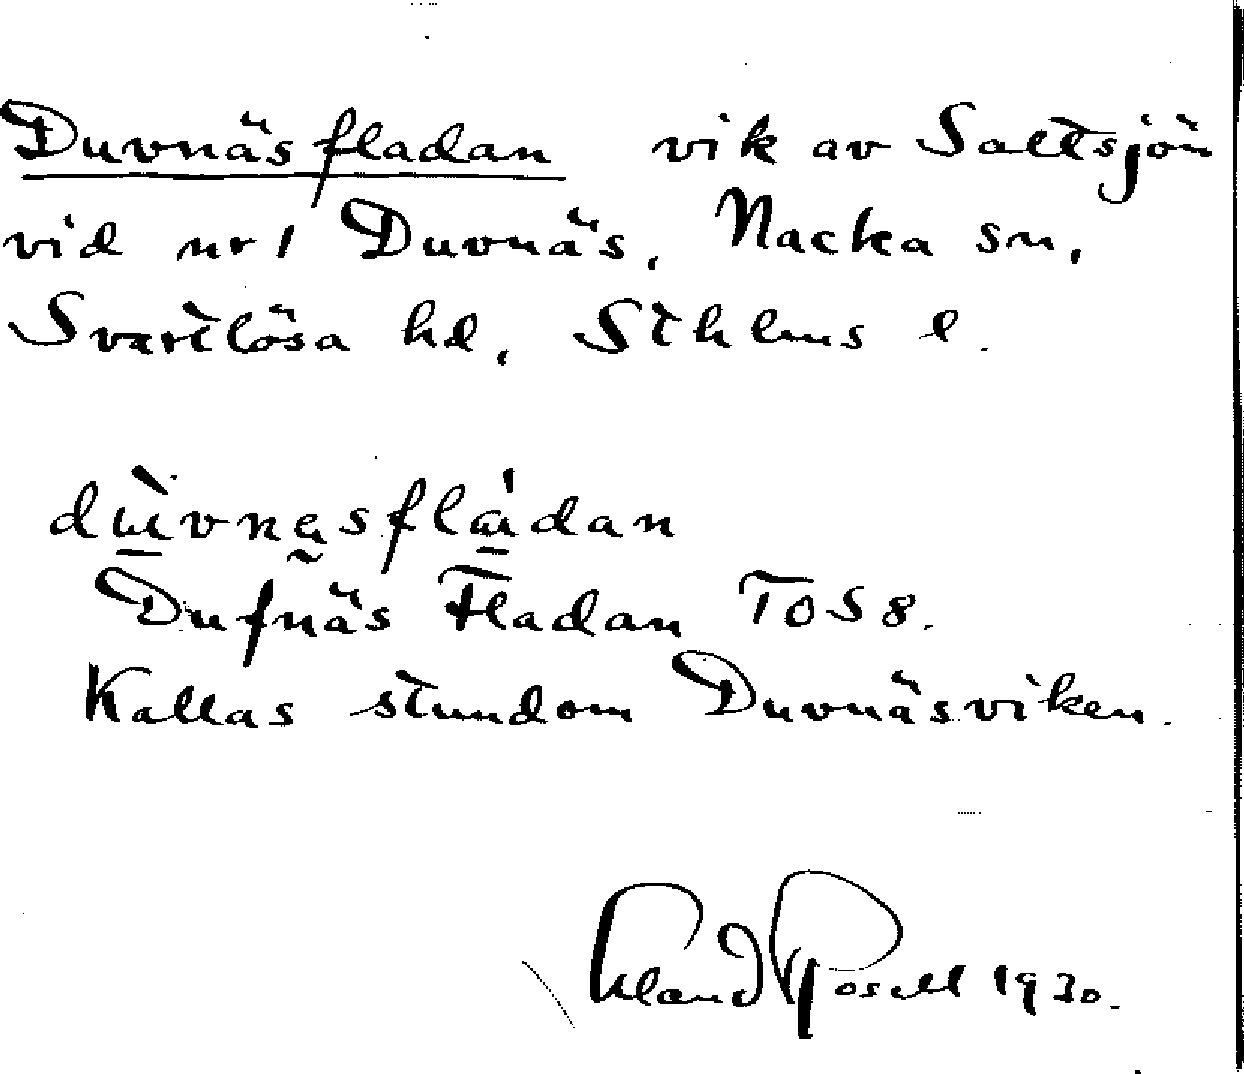 Duvnäsfladan vik av Saltsjön
vid nr 1 Duvnäs, Nacka sn,
Svartlösa hd, Sthlms l.
dùvnəsfládan
Dufnäs Fladan TOS 8.
Kallas stundom Duvnäsviken.
Erland Rosell 1930.